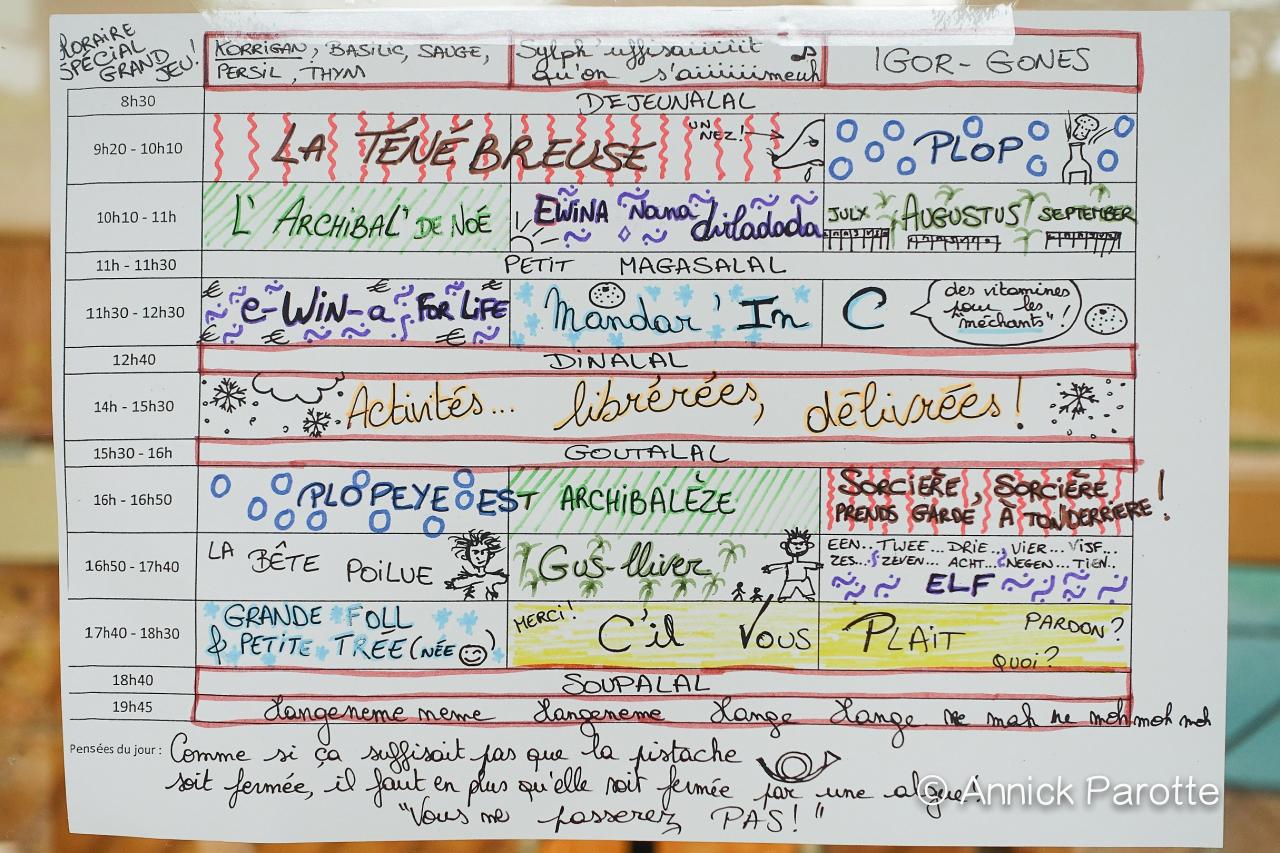 HORAIRE
SPÉCIAL
GRAND
JEU!
KORRIGAN, BASILIC, SAUGE,
PERSIL, THYM
Sylph'uffisaiiiiit
qu'on s'aiiiiiimeuh
IGOR-GONES
8h30
DEJEUNALAL
9h20 - 10h10
LA TÉNÉBREUSE
UN
NEZ!
PLOP
10h10 - 11h
L'ARCHIBAL' DE NOÉ
EWINA Nana dirladada
JULY AUGUSTUS SEPTEMBER
11h - 11h30
PETIT MAGASALAL
11h30 - 12h30
€ € €
e-WiN-a FOR LIFE
€ € €
Mandar'Im
C
des vitamines
pour les
"méchants"!
12h40
DINALAL
14h - 15h30
Activités... librérées, délivrées!
15h30 - 16h
GOUTALAL
16h - 16h50
PLOPEYE EST ARCHIBALÈZE
SORCIÈRE, SORCIÈRE
PRENDS GARDE À TON DERRIÈRE!
16h50 - 17h40
LA BÊTE POILUE
Gus-lliver
EEN... TWEE... DRIE... VIER... VIJF...
ZES... ZEVEN... ACHT... NEGEN... TIEN..
ELF
17h40 - 18h30
GRANDE FOLL
& PETITE TRÉE (NÉE)
MERCI!
C'il Vous
PLAIT
PARDON?
QUOI?
18h40
SOUPALAL
19h45
Hangeneme meme Hangeneme Hange Hange me mah me moh moh moh
Pensées du jour : Comme si ça suffisait pas que la pistache
soit fermée, il faut en plus qu'elle soit fermée par une algue!
"Vous ne passerez PAS!"
© Annick Parotte